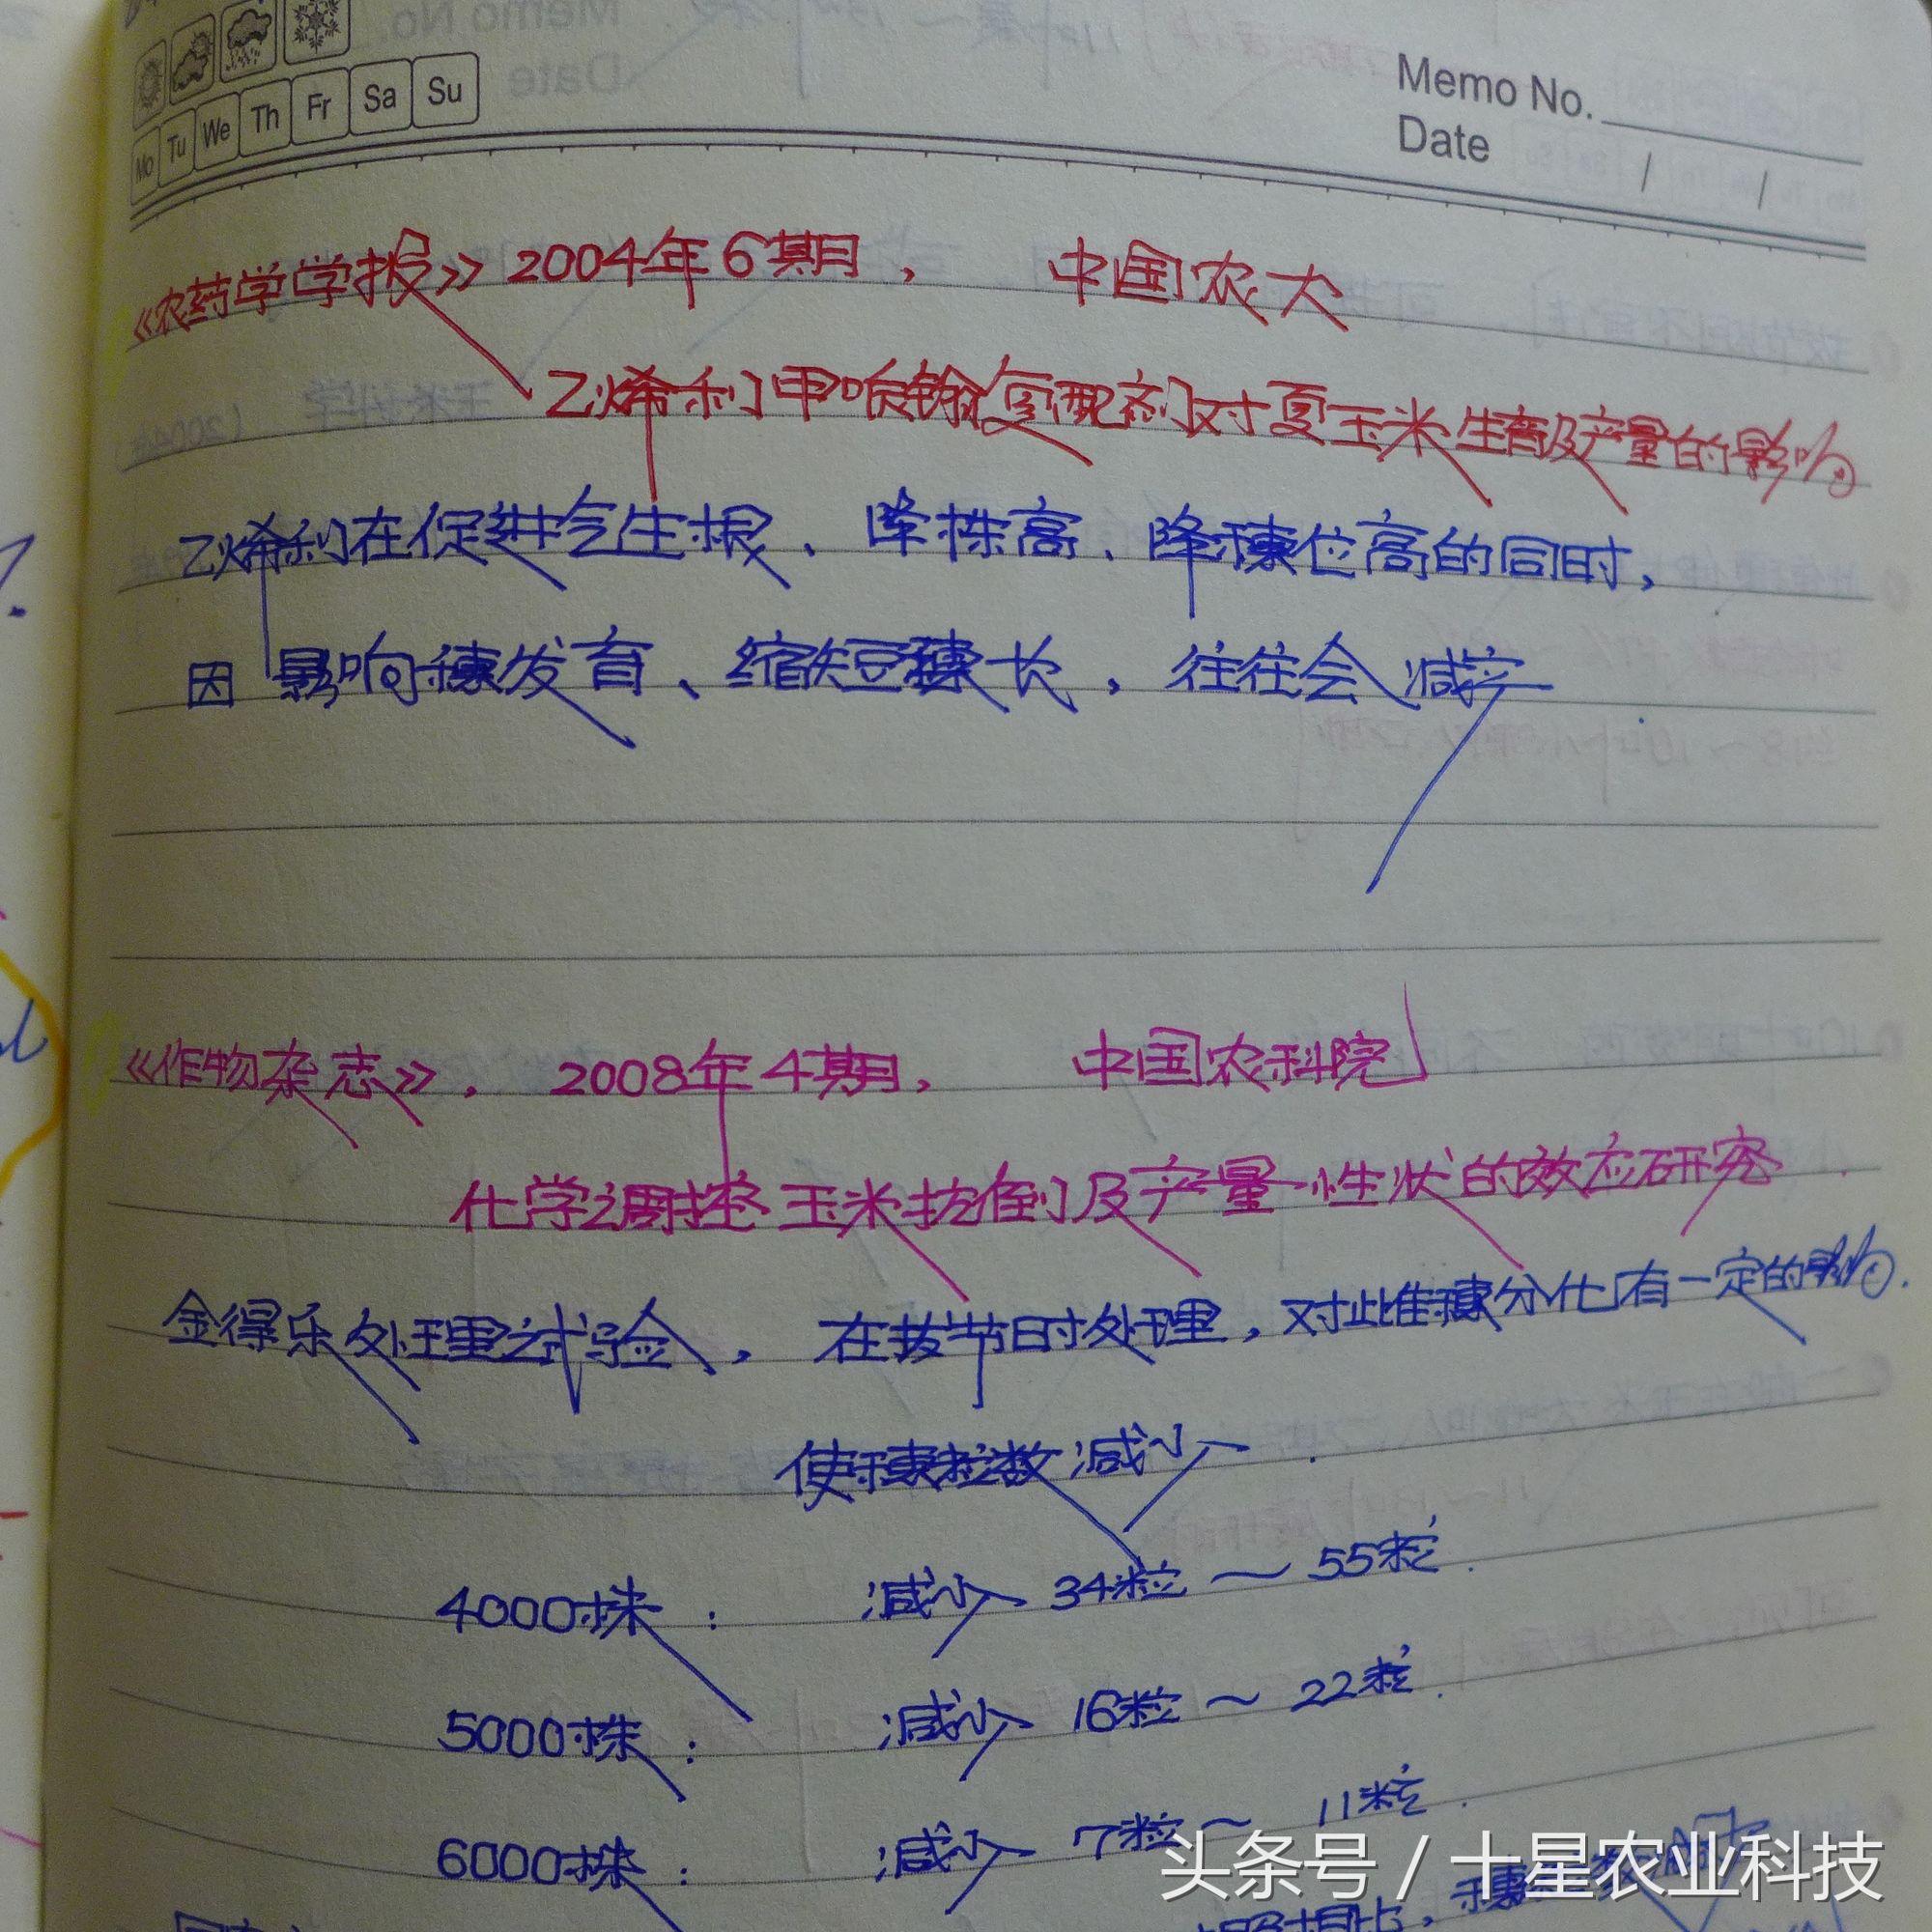 Memo No.
Mo Tu We Th Fr Sa Su
Date / /
《农药学学报》2004年6期, 中国农大
乙烯利甲哌鎓复配剂对夏玉米生育及产量的影响
乙烯利在促进气生根、降株高、降穗位高的同时,
因影响穗发育、缩短穗长,往往会减产
《作物杂志》, 2008年4期, 中国农科院
化学调控玉米抗倒及产量性状的效应研究
金得乐处理之试验, 在拔节时处理,对雌穗分化有一定的影响.
使穗粒数减少.
4000株: 减少34粒~55粒.
5000株: 减少16粒~22粒.
6000株: 减少7粒~11粒.
头条号 / 十星农业科技